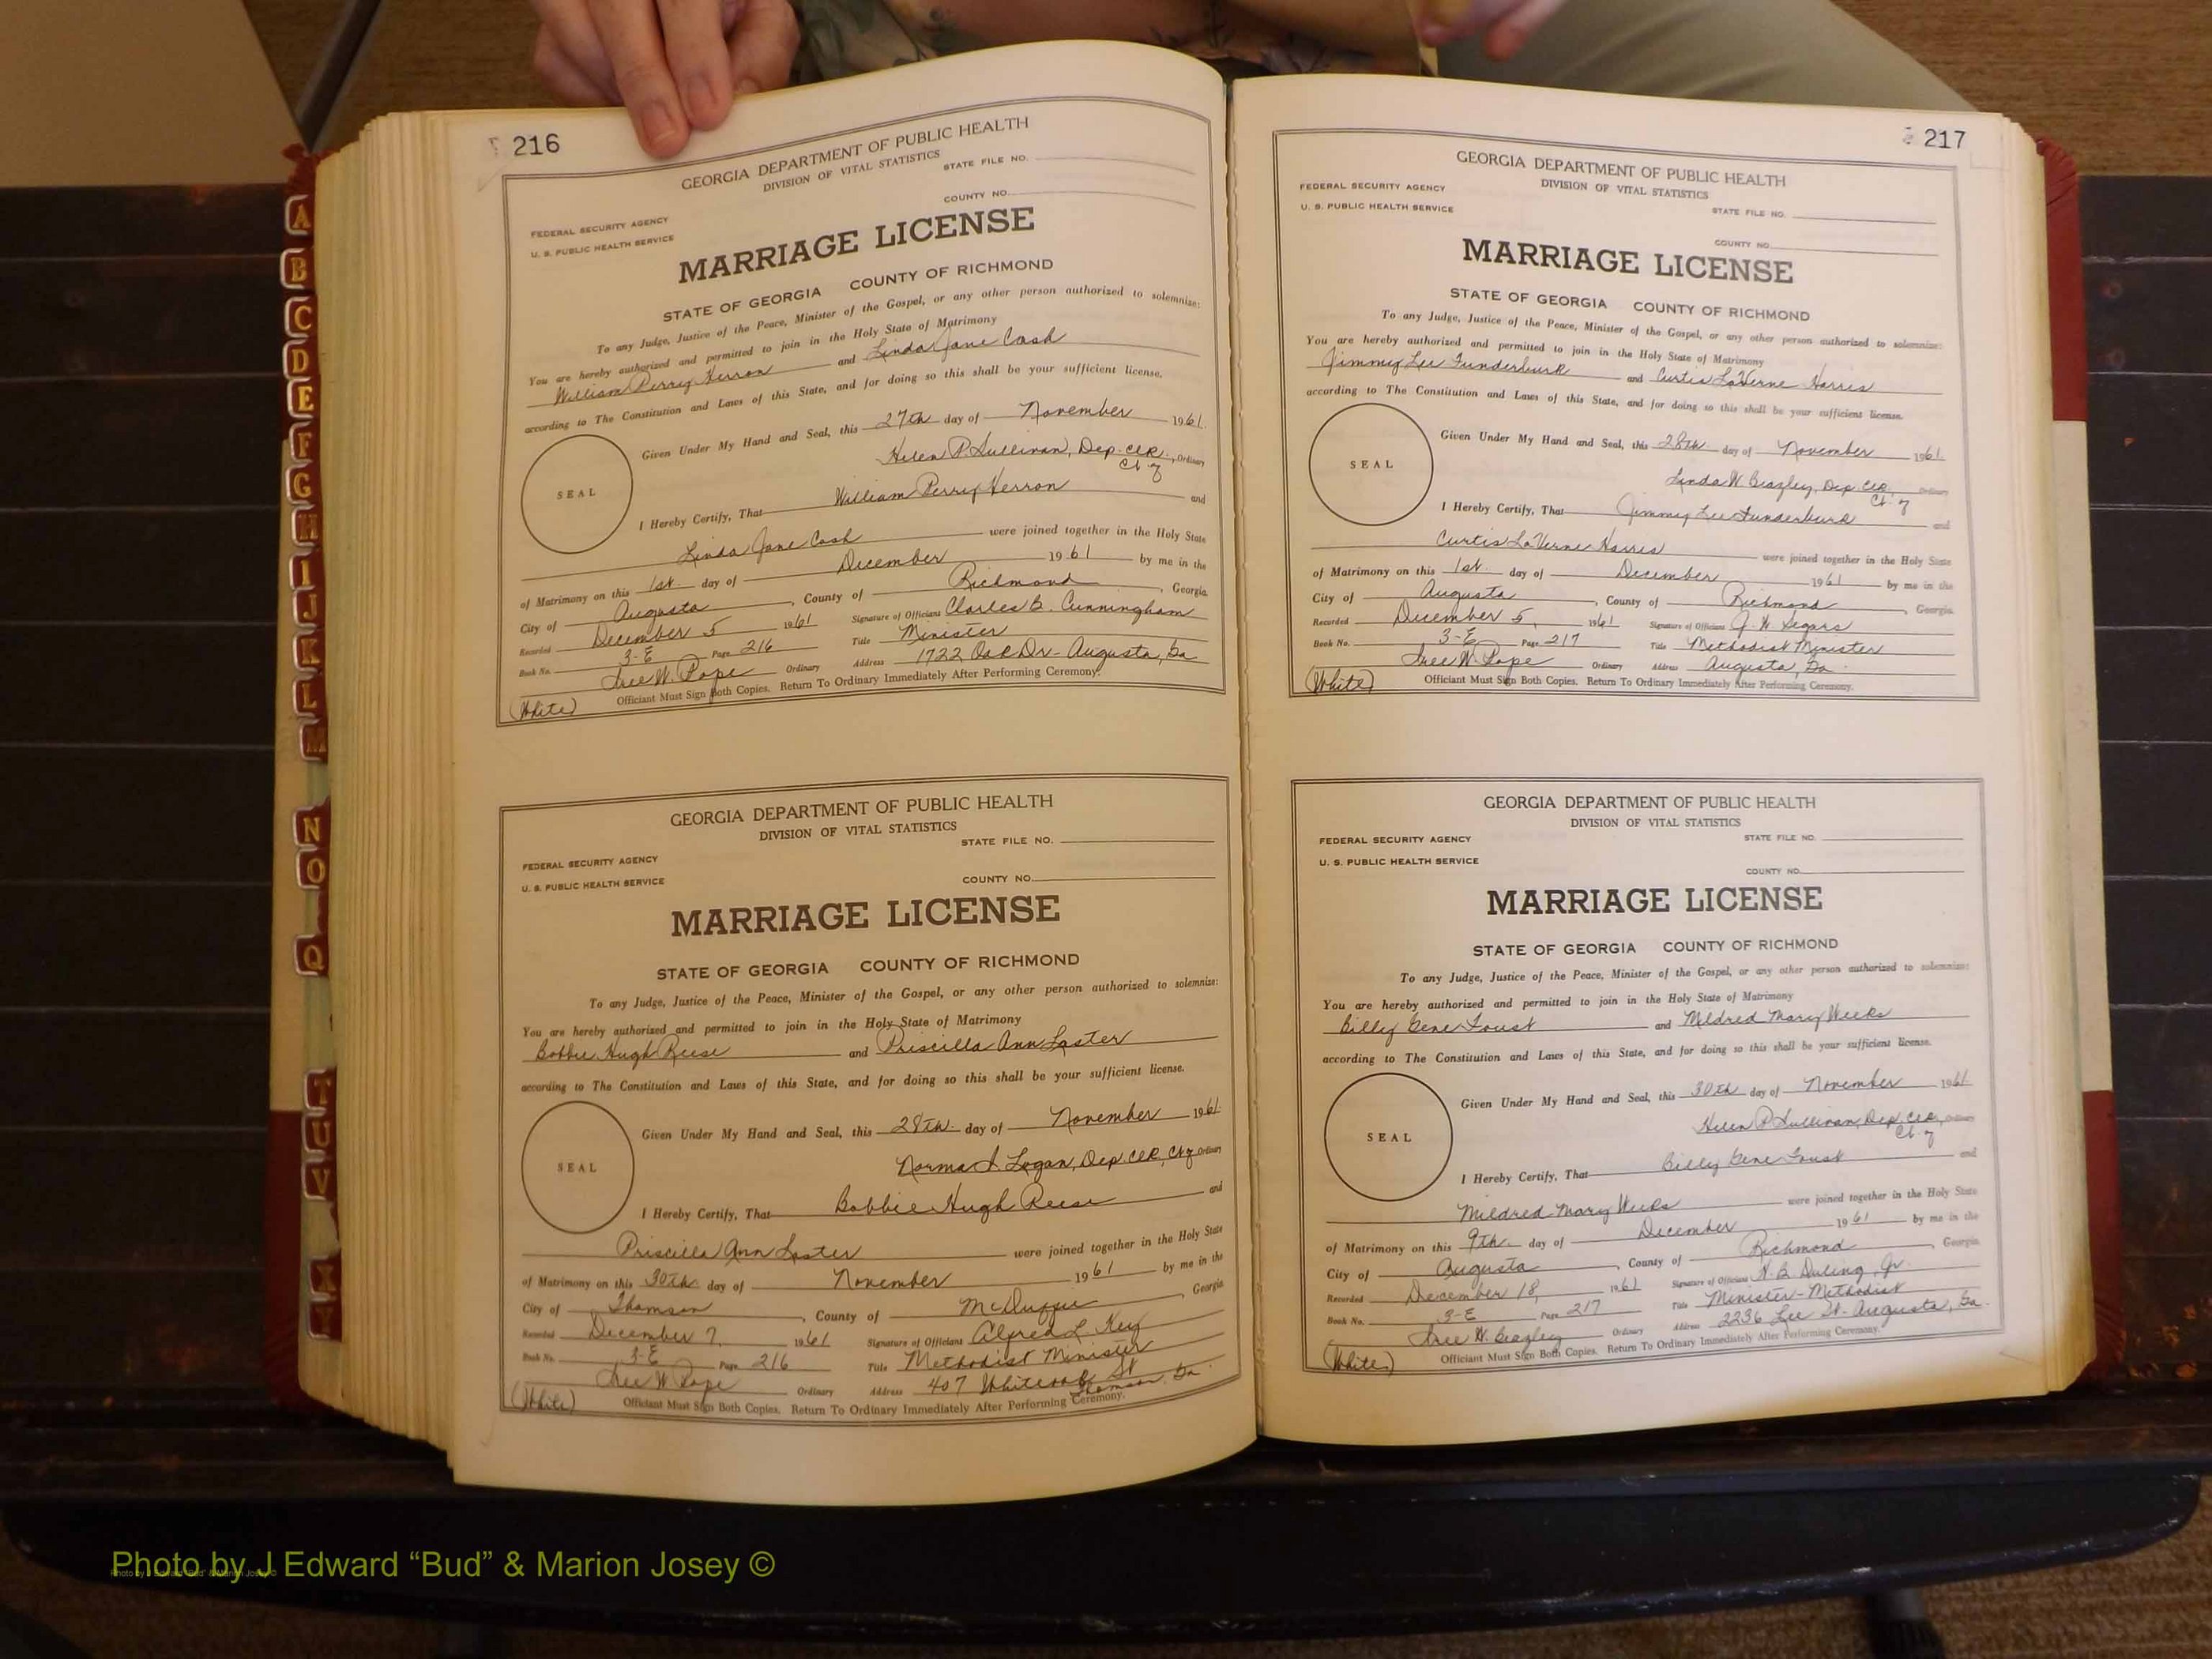 216
GEORGIA DEPARTMENT OF PUBLIC HEALTH
DIVISION OF VITAL STATISTICS
STATE FILE NO.
COUNTY NO.
FEDERAL SECURITY AGENCY
U. S. PUBLIC HEALTH SERVICE
MARRIAGE LICENSE
STATE OF GEORGIA COUNTY OF RICHMOND
To any Judge, Justice of the Peace, Minister of the Gospel, or any other person authorized to solemnize:
You are hereby authorized and permitted to join in the Holy State of Matrimony
William Perry Herron and Linda Jane Cash
according to The Constitution and Laws of this State, and for doing so this shall be your sufficient license.
Given Under My Hand and Seal, this 27th day of November 1961.
Helen P. Sullivan, Dep. Clk., Ordinary
SEAL
I Hereby Certify, That William Perry Herron and
Linda Jane Cash were joined together in the Holy State
of Matrimony on this 1st. day of December 1961 by me in the
City of Augusta, County of Richmond, Georgia.
Recorded December 5 1961 Signature of Officiant Charles B. Cunningham
Book No. 3-E Page 216 Title Minister
W. Pope Ordinary Address 1722 Dr- Augusta, Ga
(White) Officiant Must Sign Both Copies. Return To Ordinary Immediately After Performing Ceremony.
GEORGIA DEPARTMENT OF PUBLIC HEALTH
DIVISION OF VITAL STATISTICS
STATE FILE NO.
FEDERAL SECURITY AGENCY
U. S. PUBLIC HEALTH SERVICE
COUNTY NO.
MARRIAGE LICENSE
STATE OF GEORGIA COUNTY OF RICHMOND
To any Judge, Justice of the Peace, Minister of the Gospel, or any other person authorized to solemnize:
You are hereby authorized and permitted to join in the Holy State of Matrimony
Bobbie Hugh Reese and Priscilla Ann Laster
according to The Constitution and Laws of this State, and for doing so this shall be your sufficient license.
Given Under My Hand and Seal, this 28th. day of November 1961.
Norma Logan, Dep. Clk, Ordinary
SEAL
I Hereby Certify, That Bobbie Hugh Reese and
Priscilla Ann Laster were joined together in the Holy State
of Matrimony on this 30th. day of November 1961 by me in the
City of Thomson, County of McDuffie Georgia
Recorded December 7, 1961 Signature of Officiant Alfred L. Key
Book No. 3-E Page 216 Title Methodist Minister
W. Pope Ordinary Address 407 Whiteoak St
Thomson, Ga.
(White) Officiant Must Sign Both Copies. Return To Ordinary Immediately After Performing Ceremony.
217
GEORGIA DEPARTMENT OF PUBLIC HEALTH
DIVISION OF VITAL STATISTICS
FEDERAL SECURITY AGENCY
U. S. PUBLIC HEALTH SERVICE
STATE FILE NO.
COUNTY NO.
MARRIAGE LICENSE
STATE OF GEORGIA COUNTY OF RICHMOND
To any Judge, Justice of the Peace, Minister of the Gospel, or any other person authorized to solemnize:
You are hereby authorized and permitted to join in the Holy State of Matrimony
Jimmy Lee Funderburk and Curtis LaVerne Harris
according to The Constitution and Laws of this State, and for doing so this shall be your sufficient license.
Given Under My Hand and Seal, this 28th. day of November 1961.
Linda W. Beazley, Dep. Clk. Ordinary
SEAL
I Hereby Certify, That Jimmy Lee Funderburk and
Curtis LaVerne Harris were joined together in the Holy State
of Matrimony on this 1st. day of December 1961 by me in the
City of Augusta, County of Richmond, Georgia.
Recorded December 5, 1961 Signature of Officiant J. W. Segars
Book No. 3-E Page 217 Title Methodist Minister
W. Pope Ordinary Address Augusta, Ga.
(White) Officiant Must Sign Both Copies. Return To Ordinary Immediately After Performing Ceremony.
GEORGIA DEPARTMENT OF PUBLIC HEALTH
DIVISION OF VITAL STATISTICS
FEDERAL SECURITY AGENCY
STATE FILE NO.
U. S. PUBLIC HEALTH SERVICE
COUNTY NO.
MARRIAGE LICENSE
STATE OF GEORGIA COUNTY OF RICHMOND
To any Judge, Justice of the Peace, Minister of the Gospel, or any other person authorized to solemnize:
You are hereby authorized and permitted to join in the Holy State of Matrimony
Billy Gene Foust and Mildred Mary Weeks
according to The Constitution and Laws of this State, and for doing so this shall be your sufficient license.
Given Under My Hand and Seal, this 30th day of November 1961
Helen P. Sullivan, Dep. Clk., Ordinary
SEAL
I Hereby Certify, That Billy Gene Foust and
Mildred Mary Weeks were joined together in the Holy State
of Matrimony on this 9th. day of December 1961 by me in the
City of Augusta, County of Richmond, Georgia
Recorded December 18, 1961 Signature of Officiant
Book No. 3-E Page 217 Title Minister-Methodist
W. Beazley Ordinary Address 2236 Lee St- Augusta, Ga.
(White) Officiant Must Sign Both Copies. Return To Ordinary Immediately After Performing Ceremony.
A
B
C
D
E
F
G
H
I
J
K
L
M
N
O
Q
T
U
V
X
Y
Photo by J Edward “Bud” & Marion Josey ©